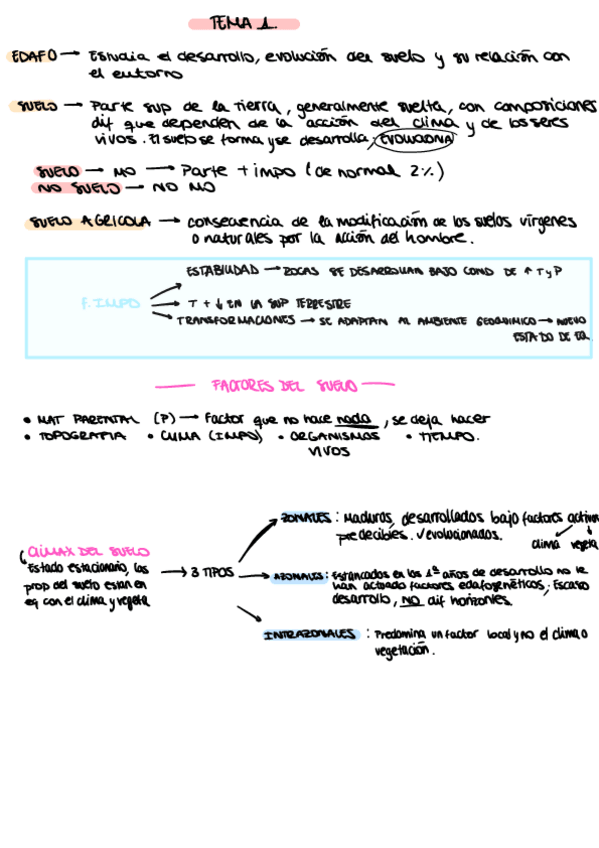 TEMA 1.
EDAFO → Estudia el desarrollo, evolución del suelo y su relación con
el entorno
SUELO → Parte sup de la Tierra, generalmente suelta, con composiciones
dif que dependen de la acción del clima y de los seres
vivos. El suelo se forma y se desarrolla: EVOLUCIONA
SUELO → MO → Parte + impo (de normal 2%)
NO SUELO → NO MO
SUELO AGRÍCOLA → consecuencia de la modificación de los suelos vírgenes
o naturales por la acción del hombre.
F. IMPO
ESTABILIDAD → ROCAS SE DESARROLLAN BAJO COND DE ↑ T y P
→ T + ↓ EN LA SUP TERRESTRE
TRANSFORMACIONES → SE ADAPTAN AL AMBIENTE GEOQUÍMICO → NUEVO
ESTADO DE EQ.
FACTORES DEL SUELO
• MAT PARENTAL (P) → Factor que no hace nada, se deja hacer
• TOPOGRAFIA • CLIMA (IMPO) • ORGANISMOS • TIEMPO.
VIVOS
CLÍMAX DEL SUELO
Estado estacionario, las
prop del suelo estan en
eq con el clima y vegeta
→ 3 TIPOS
ZONALES: Maduros, desarrollados bajo factores activos
predecibles. √ evolucionados.
clima vegeta
AZONALES: Estancados en los 1º años de desarrollo no le
han actuado factores edafogenéticos; Escaso
desarrollo, NO dif horizontes.
INTRAZONALES: Predomina un factor local y no el clima o
vegetación.